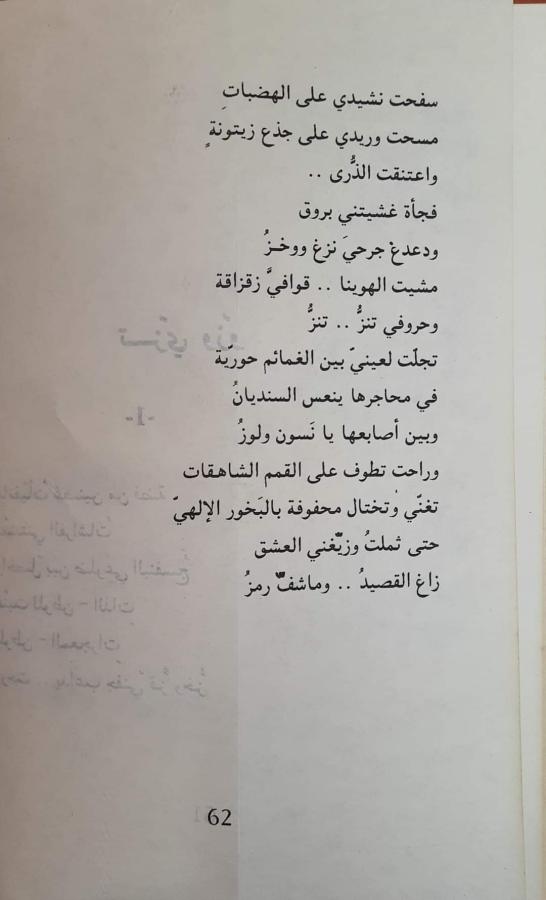 سفحت نشيدي على الهضباتِ
مسحت وريدي على جذع زيتونةٍ
واعتنقت الذُّرى ..
فجأة غشيتني بروق
ودعدغ جرحيَ نزغ ووخـزُ
مشيت الهوينا .. قوافيَّ زقزاقة
وحروفي تنزُّ .. تنزُّ
تجلّت لعينيّ بين الغمائم حوريّة
في محاجرها ينعس السنديانُ
وبين أصابعها يا نَسون ولوزُ
وراحت تطوف على القمم الشاهقات
تغنّي وتختال محفوفة بالبَخور الإلهيّ
حتى ثملتُ وزيّغني العشق
زاغ القصيدُ .. وماشفّ رمزُ
62